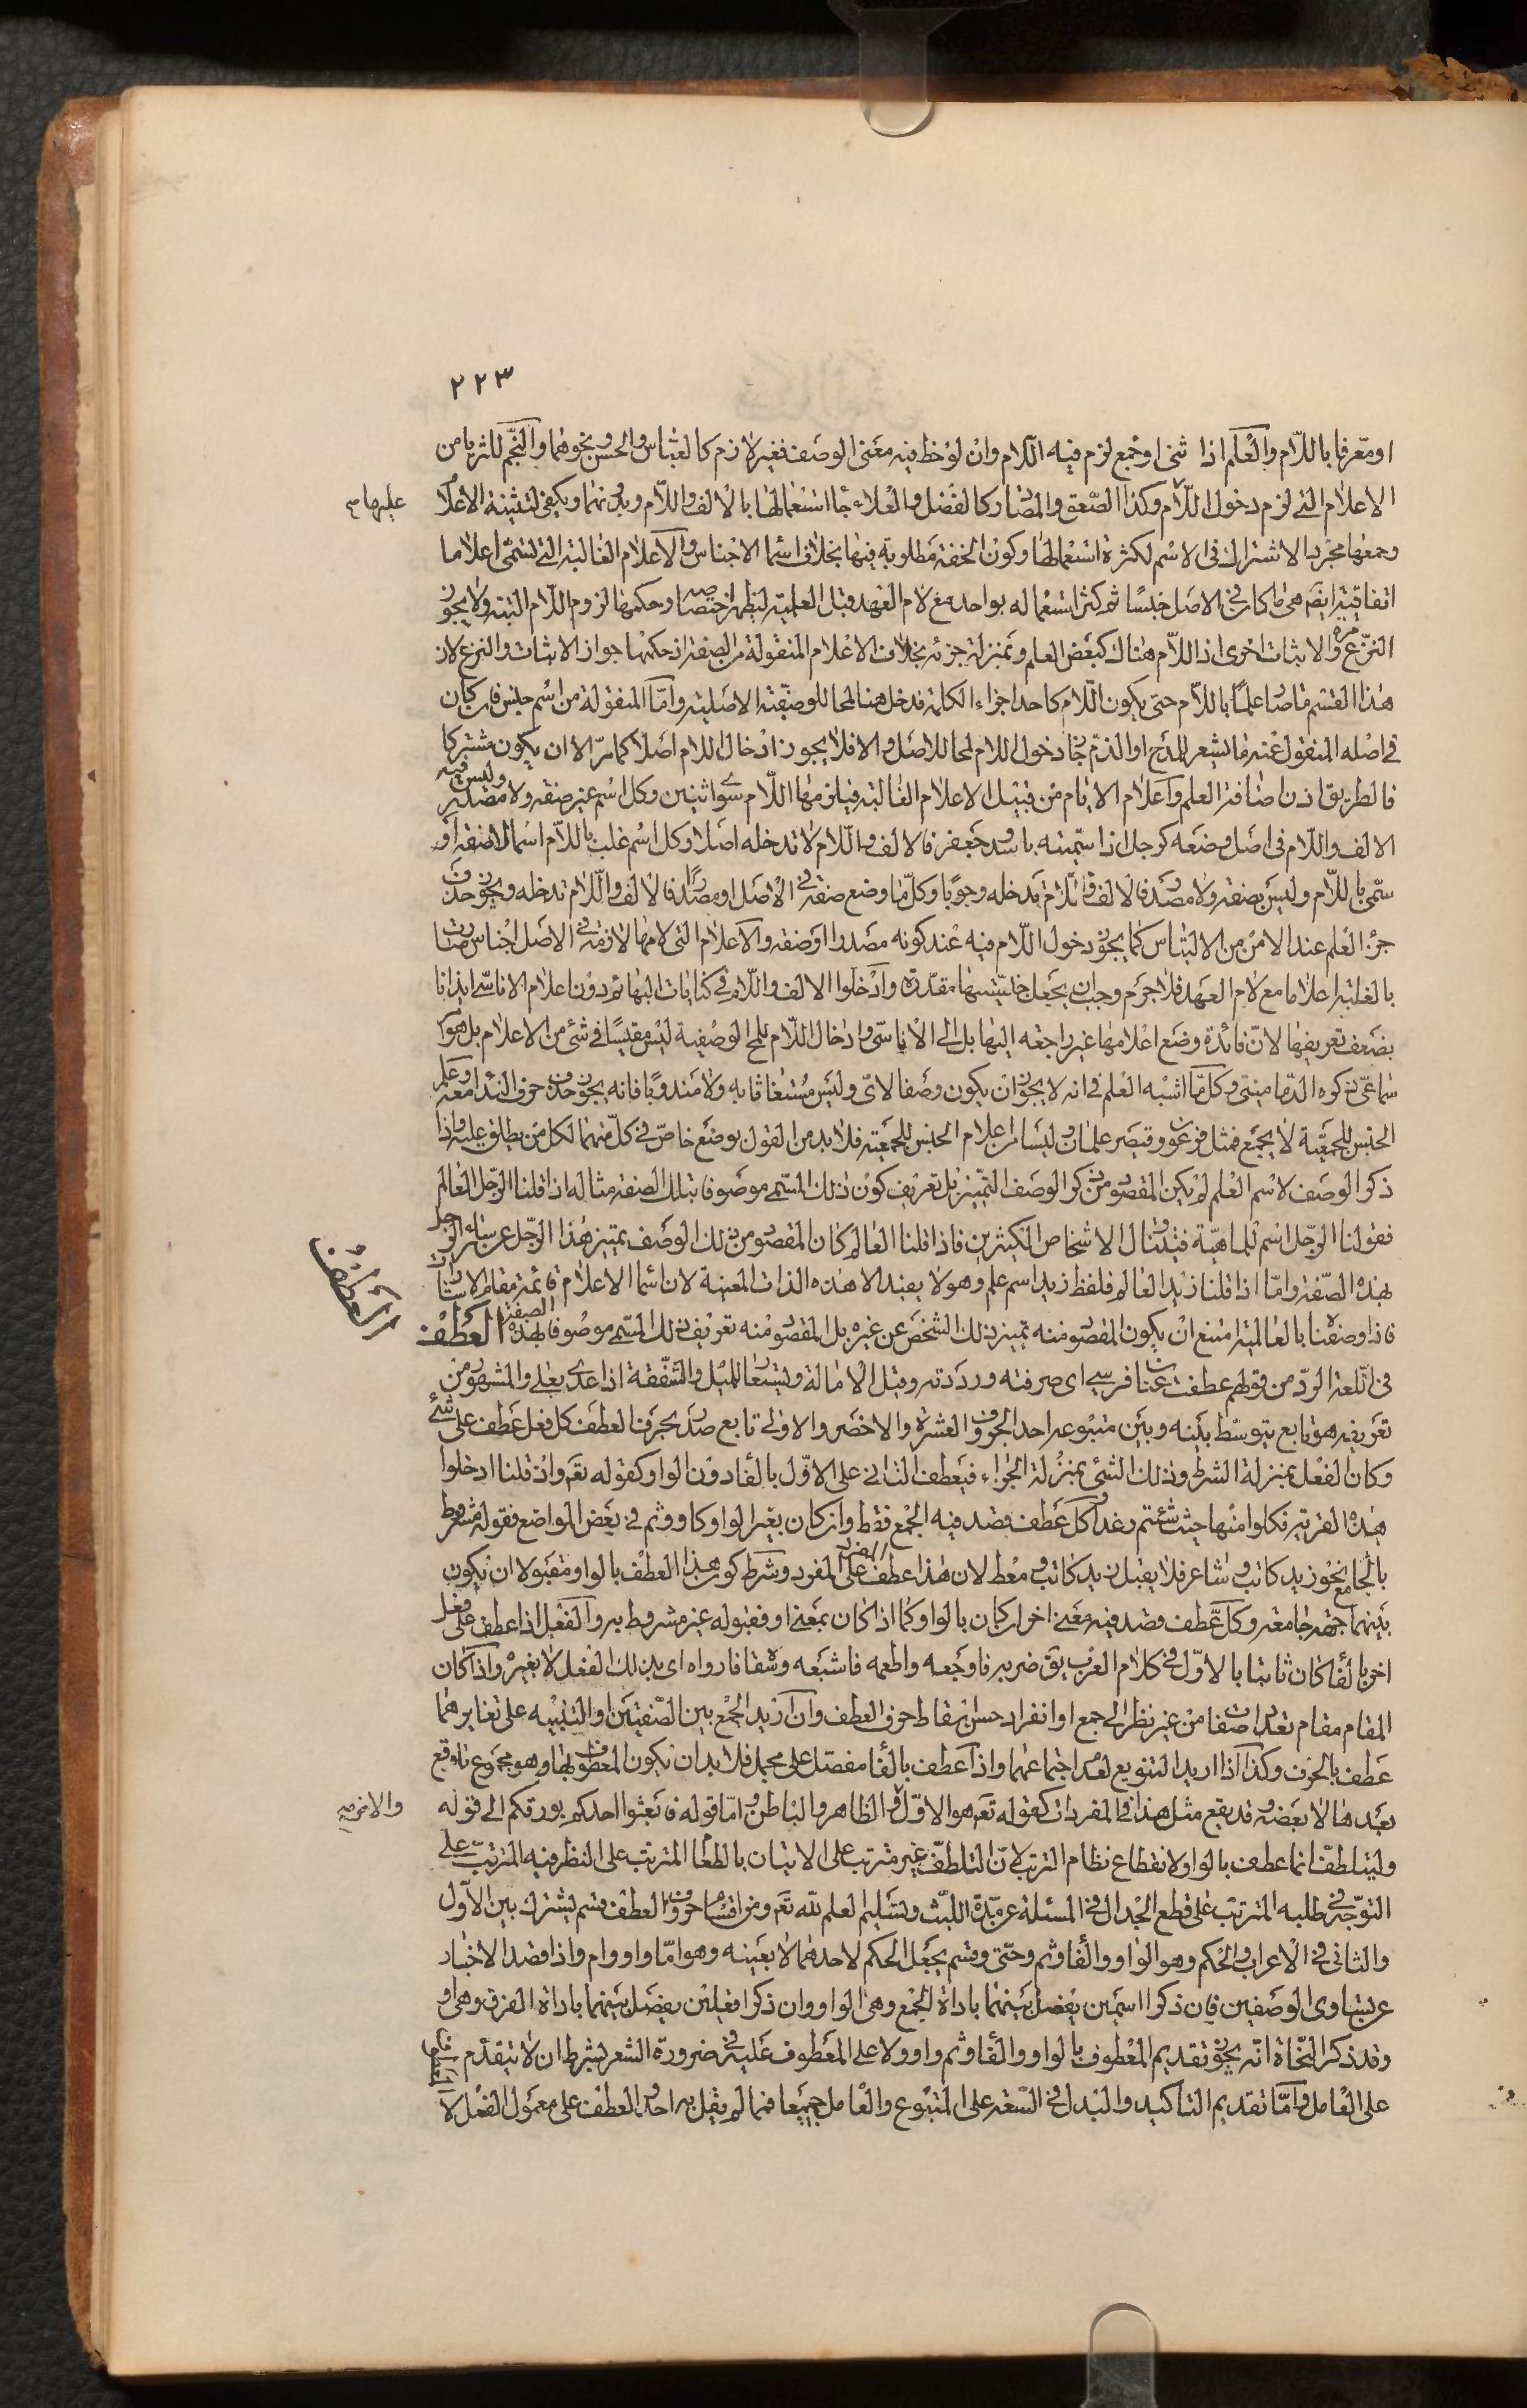 ٢٢٣
او معرفا باللام والعلم اذا ثنى او جمع لزم فيه اللام وان لوحظ فيه معنى الوصف فغير لازم كالعباس والحسن ونحوهما والنجم للثريا من
الاعلام التي لزم دخول اللام عليها وكذا الصعق والدبران وكالفضل والعلاء جاء استعمالها بالالف واللام وبدونهما ويكفي لتثنية الاعلام
وجمعها مجرد الاشتراك في الاسم لكثرة استعمالها وكون الخفة مطلوبة فيها بخلاف اسماء الاجناس والاعلام الغالبة التي تسمى اعلاما
اتفاقية ايضا هي ما كان في الاصل جنسا ثم كثر استعماله بواحد مع لام العهد قبل العلمية ليظهر اختصاصه وحكمها لزوم اللام البتة ولا يجوز
النزع مرة والاثبات اخرى اذ اللام هناك كبعض العلم وبمنزلة جزئه بخلاف الاعلام المنقولة من الصفة اذ حكمها جواز الاثبات والنزع لان
هذا القسم ما صار علما باللام حتى يكون اللام كاحد اجزاء الكلمة فدخل هنا لمحا للوصفية الاصلية واما المنقولة من اسم جنس فان كان
في اصله المنقول عنه ما يشعر المدح او الذم جاز دخول اللام لمحا للاصل والا فلا يجوز ادخال اللام اصلا كما مر الا ان يكون مشتركا
فالطريق اذن اضافة العلم واعلام الايام من قبيل الاعلام الغالبة فيلزمها اللام سوى اثنين وكل اسم غير صفة ولا مصدر وليس فيه
الالف واللام في اصل وضعه كرجل اذا سميته باسد وجعفر فالالف واللام لا تدخله اصلا وكل اسم غلب باللام اسما لا صفة او
سمي باللام وليس بصفة ولا مصدر فالالف واللام يدخله وجوبا وكل ما وضع صفة في الاصل او مصدرا فالالف واللام تدخله ويجوز حذف
جزء العلم عند الامن من الالتباس كما يجوز دخول اللام فيه عند كونه مصدرا او صفة والاعلام التي لامها لازمة في الاصل اجناس صارت
بالغلبة اعلاما مع لام العهد فلا جرم وجب ان يجعل جنسيتها مقدرة وادخلوا الالف واللام في كنايات البهائم دون اعلام الاناسي ايذانا
بضعف تعريفها لان فائدة وضع اعلامها غير راجعة اليها بل الى الاناسي وادخال اللام للمح الوصفية ليس مقيسا في شئ من الاعلام بل هو
سماعي ذكره الدماميني وكل ما اشبه العلم في انه لا يجوز ان يكون وصفا لاي وليس مستغاثا به ولا مندوبا فانه يجوز حذف حرف النداء معه وعلم
الجنس للجمعية لا يجمع فمثل فرعون وقيصر علمان وليسا من اعلام الجنس للجمعية فلا بد من القول بوضع خاص في كل منهما لكل من يطلق عليه واذا
ذكر الوصف لاسم العلم لم يكن المقصود من ذكر الوصف التمييز بل تعريف كون ذلك المسمى موصوفا بتلك الصفة مثاله اذا قلنا الرجل العالم
فقولنا الرجل اسم للماهية فيتناول الاشخاص الكثيرين فاذا قلنا العالم كان المقصود من ذلك الوصف تمييز هذا الرجل عن سائر الرجال
بهذه الصفة واما اذا قلنا زيد العالم فلفظ زيد اسم علم وهو لا يفيد الا هذه الذات المعينة لان اسماء الاعلام قائمة مقام الاشارات
فاذا وصفنا بالعالمية امتنع ان يكون المقصود منه تمييز ذلك الشخص عن غيره بل المقصود منه تعريف ذلك المسمى موصوفا بهذه الصفة العطف
في اللغة الرد من قولهم عطفت عنان فرسي اى صرفته ورددته وقيل الامالة ويستعار للميل والشفقة اذا عدي بعلى والمشهور من
تعريفه هو تابع يتوسط بينه وبين متبوعه احد الحروف العشرة والاخصر والاولى تابع صدر بحرف العطف كل فعل عطف على شئ
وكان الفعل بمنزلة الشرط وذلك الشئ بمنزلة الجزاء فيعطف الثاني على الاول بالفاء دون الواو كقوله تعه واذ قلنا ادخلوا
هذه القرية فكلوا منها حيث شئتم رغدا وكل عطف قصد فيه الجمع فقط وان كان بغير الواو كاو وثم في بعض المواضع فقوله مشروط
بالجامع نحو زيد كاتب وشاعر فلا يقبل زيد كاتب ومعط لان هذا عطف المفرد على المفرد وشرط كون هذا العطف بالواو مقبولا ان يكون
بينهما جهة جامعة وكل عطف قصد فيه معنى اخر ان كان بالواو كما اذا كان بمعنى او فقبوله غير مشروط به والفعل اذا عطف على فعل
اخر بالفاء كان ثابتا بالاول في كلام العرب يق ضربه فاوجعه واطعمه فاشبعه وسقاه فارواه اى بذلك الفعل لا بغيره واذا كان
المقام مقام تعداد صفات من غير نظر الى جمع او انفراد حسن اسقاط حرف العطف وان اريد الجمع بين الصفتين او التنبيه على تغايرهما
عطف بالحرف وكذا اذا اريد التنويع لعدم اجتماعهما واذا عطف بالفاء مفصل على مجمل فلا بد ان يكون المعطوف بها هو مجموع ما وقع
بعدها لا بعضه وقد يقع مثل هذا في المفردات كقوله تعه هو الاول والاخر والظاهر والباطن واما قوله فابعثوا احدكم بورقكم الى قوله
وليتلطف انما عطف بالواو لانقطاع نظام الترتب لان التلطف غير مترتب على الاتيان بالطعام المترتب على النظر فيه المترتب على
التوجه في طلبه المترتب على قطع الجدال في المسئلة عن مدة اللبث وتسليم العلم لله تعه ومن اقسام حروف العطف قسم يشترك بين الاول
والثاني في الاعراب والحكم وهو الواو والفاء وثم وحتى وقسم يجعل الحكم لاحدهما لا بعينه وهو اما واو وام واذا قصد الاخبار
عن تساوى الوصفين فان ذكرا اسمين يفصل بينهما باداة الجمع وهى الواو وان ذكرا فعلين يفصل بينهما باداة الفرق وهى او
وقد ذكر النحاة انه يجوز تقديم المعطوف بالواو والفاء وثم واو ولا على المعطوف عليه في ضرورة الشعر بشرط ان لا يتقدم
على العامل واما تقديم التاكيد والبدل في السعة على المتبوع والعامل جميعا فمما لم يقل به احد والعطف على معمول الفعل لا
العطف